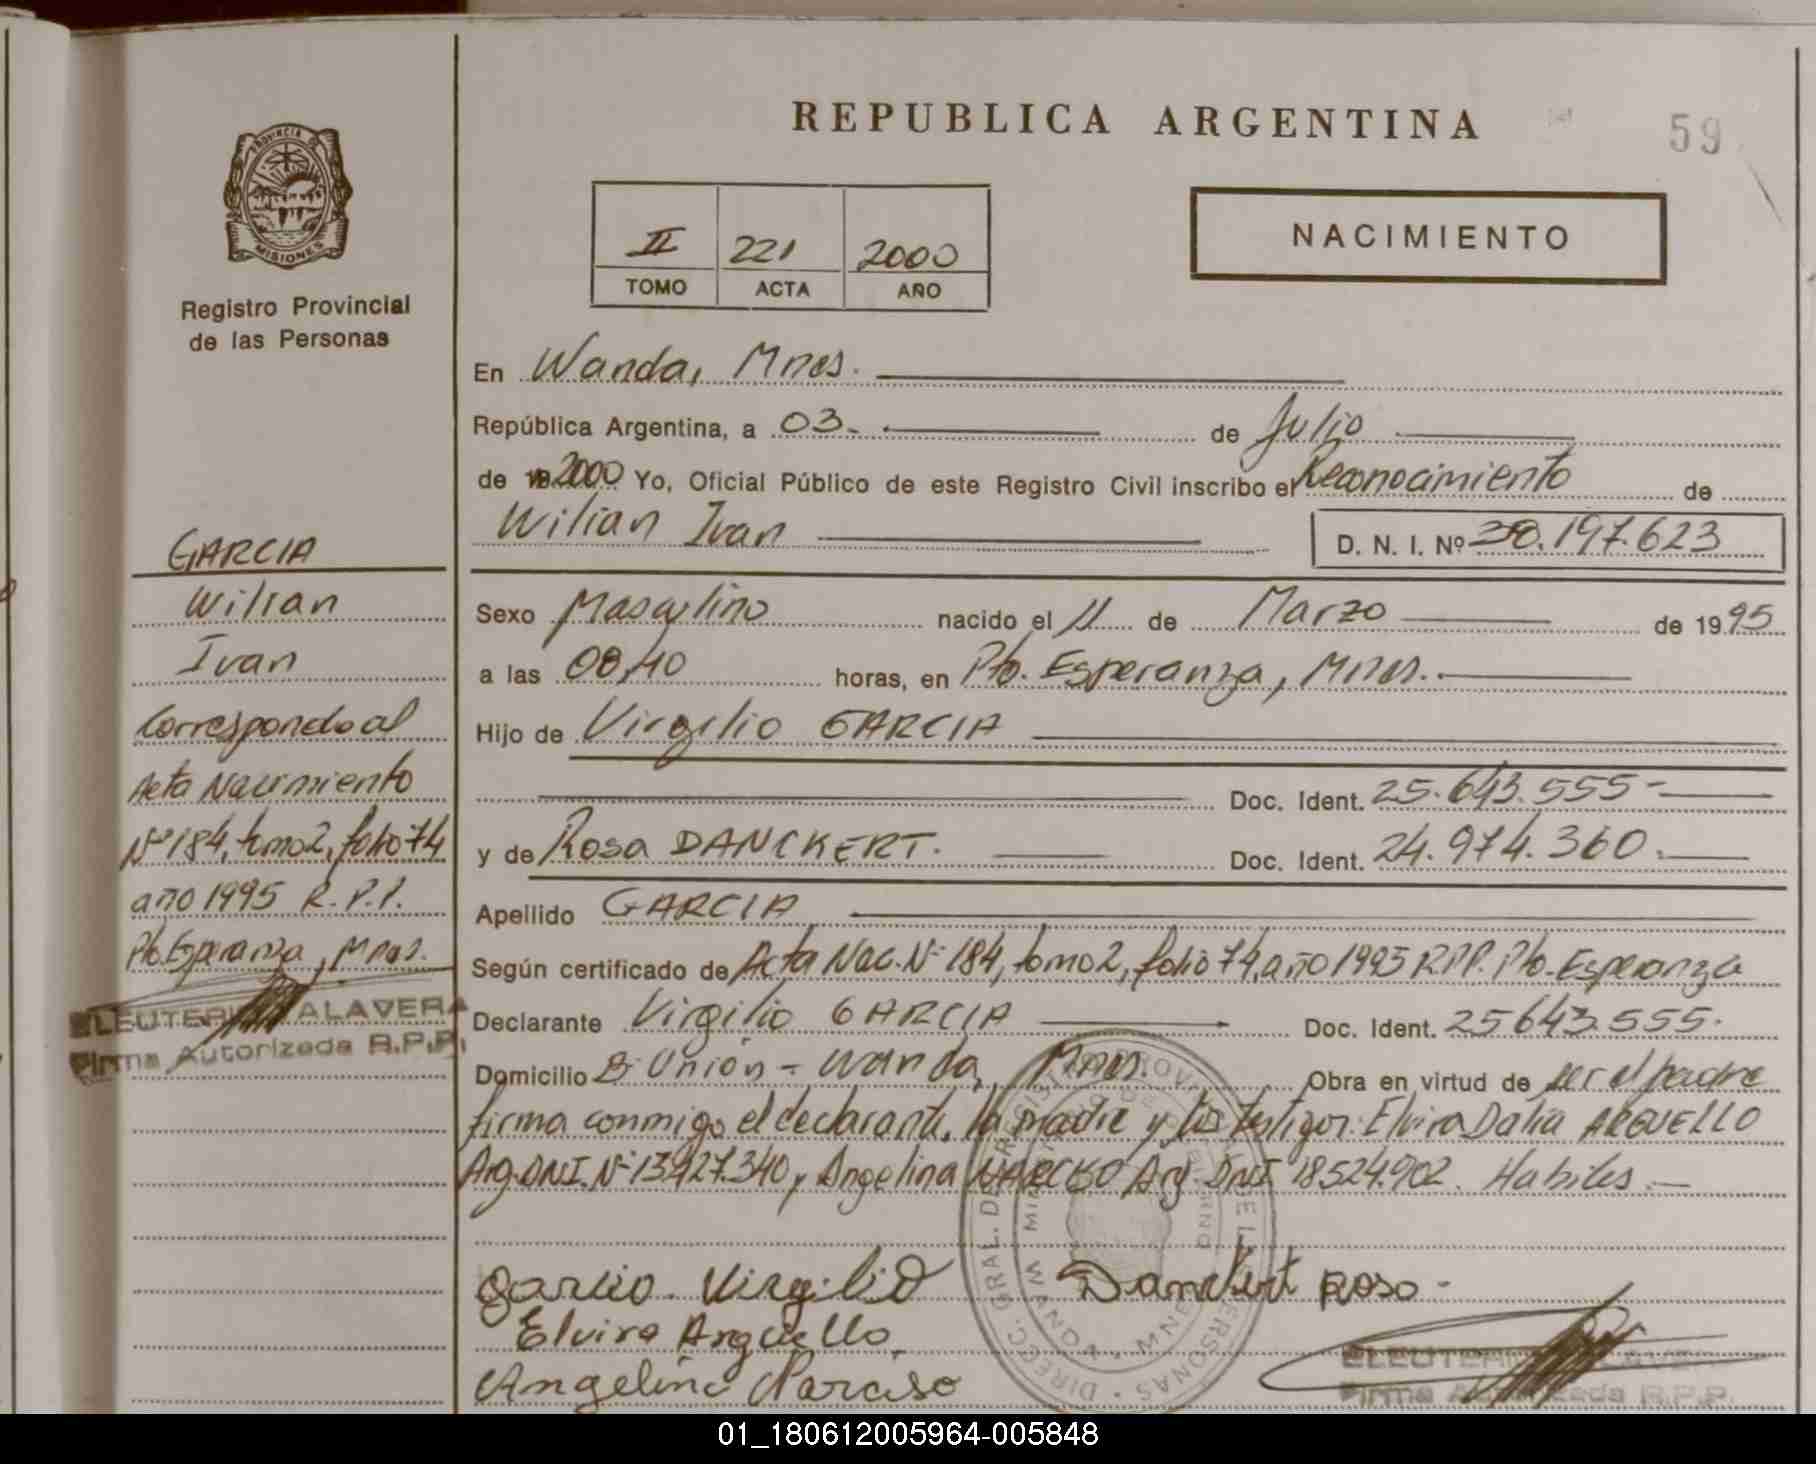 REPUBLICA ARGENTINA
59
II 221 2000
TOMO ACTA AÑO
NACIMIENTO
PROVINCIA DE
MISIONES
Registro Provincial
de las Personas
GARCIA
Wilian
Ivan
Corresponde al
Acta Nacimiento
Nº 184, tomo 2, folio 74
año 1995 R.P.P.
Pto. Esperanza, Mnes.
ELEUTERI ALAVERA
Firma Autorizada R.P.P.
En Wanda, Mnes.
República Argentina, a 03.- de Julio
de 2000 Yo, Oficial Público de este Registro Civil inscribo el Reconocimiento de
Wilian Ivan D. N. I. Nº 38.197.623
Sexo Masculino nacido el 11 de Marzo de 1995
a las 08,40 horas, en Pto. Esperanza, Mnes.
Hijo de Virgilio GARCIA
Doc. Ident. 25.643.555-
y de Rosa DANCKERT. Doc. Ident. 24.974.360.
Apellido GARCIA
Según certificado de Acta Nac. Nº 184, tomo 2, folio 74, año 1995 R.P.P. Pto. Esperanza
Declarante Virgilio GARCIA Doc. Ident. 25643.555.
Domicilio Bº Unión - Wanda, Mnes. Obra en virtud de ser el padre
firma conmigo el declarante, la madre y los testigos: Elvira Dalia ARGUELLO
Arg. DNI. Nº 13.727.340 y Angelina Arg. DNI. 18524.902. Habiles.-
Garcia Virgilio Danckert Rosa
Elvira Arguello
Angelina Narciso
ELEUTERI ALAVERA
Firma Autorizada R.P.P.
01_180612005964-005848